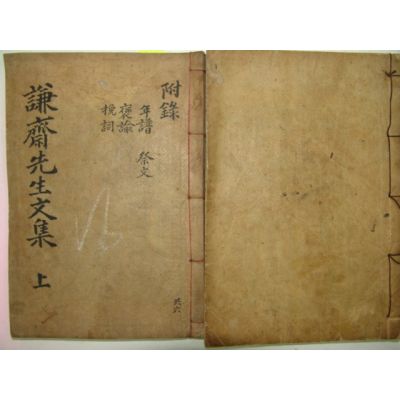 謙齋先生文集 上
附錄
年譜 祭文
褒諭
挽詞
共六